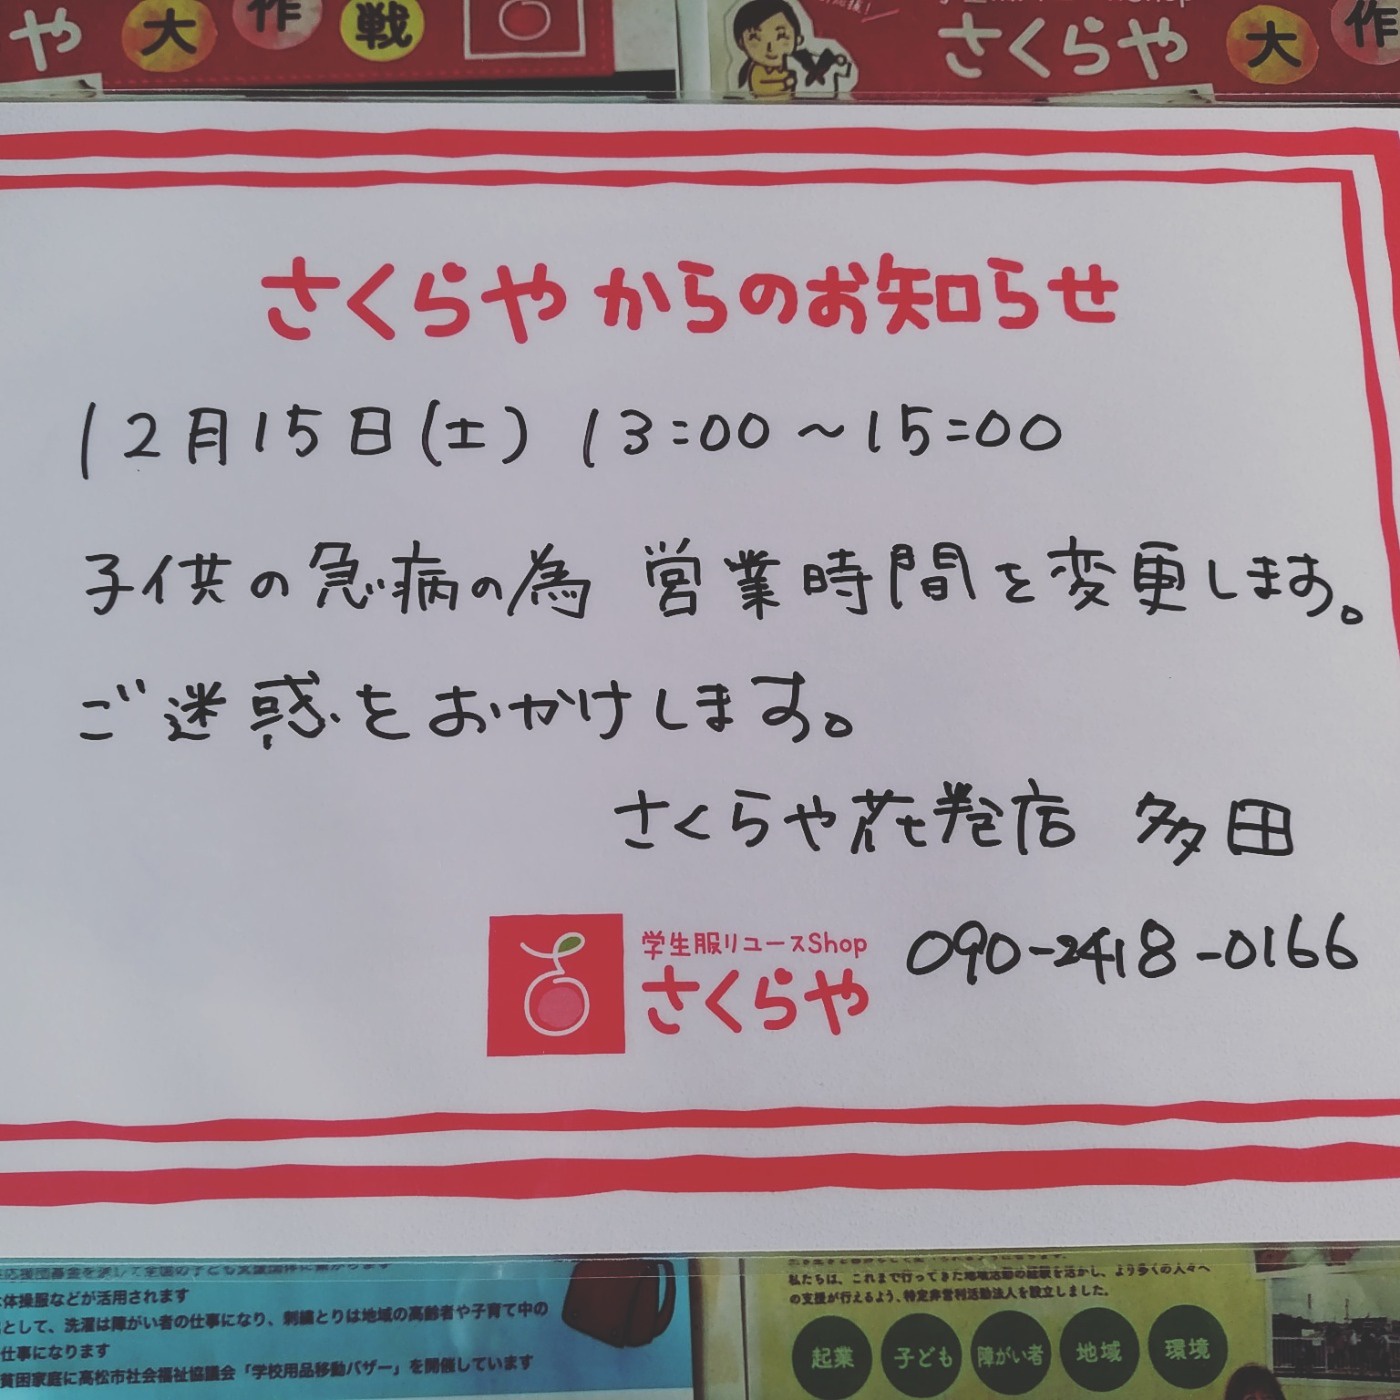 や大作戦
さくらや大作
さくらやからのお知らせ
12月15日(土) 13:00～15:00
子供の急病の為 営業時間を変更します。
ご迷惑をおかけします。
さくらや花巻店 多田
学生服リユースShop
さくらや
090-2418-0166
体操服などが活用されます
として、洗濯は障がい者の仕事になり、刺繍とりは地域の高齢者や子育て中の
仕事になります
貧困家庭に高松市社会福祉協議会「学校用品移動バザー」を開催しています
私たちは、これまで行ってきた地域活動の経験を活かし、より多くの人々へ
の支援が行えるよう、特定非営利活動法人を設立しました。
起業 子ども 障がい者 地域 環境